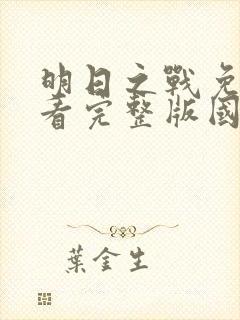 明日之戰免
看完整版國
葉金生